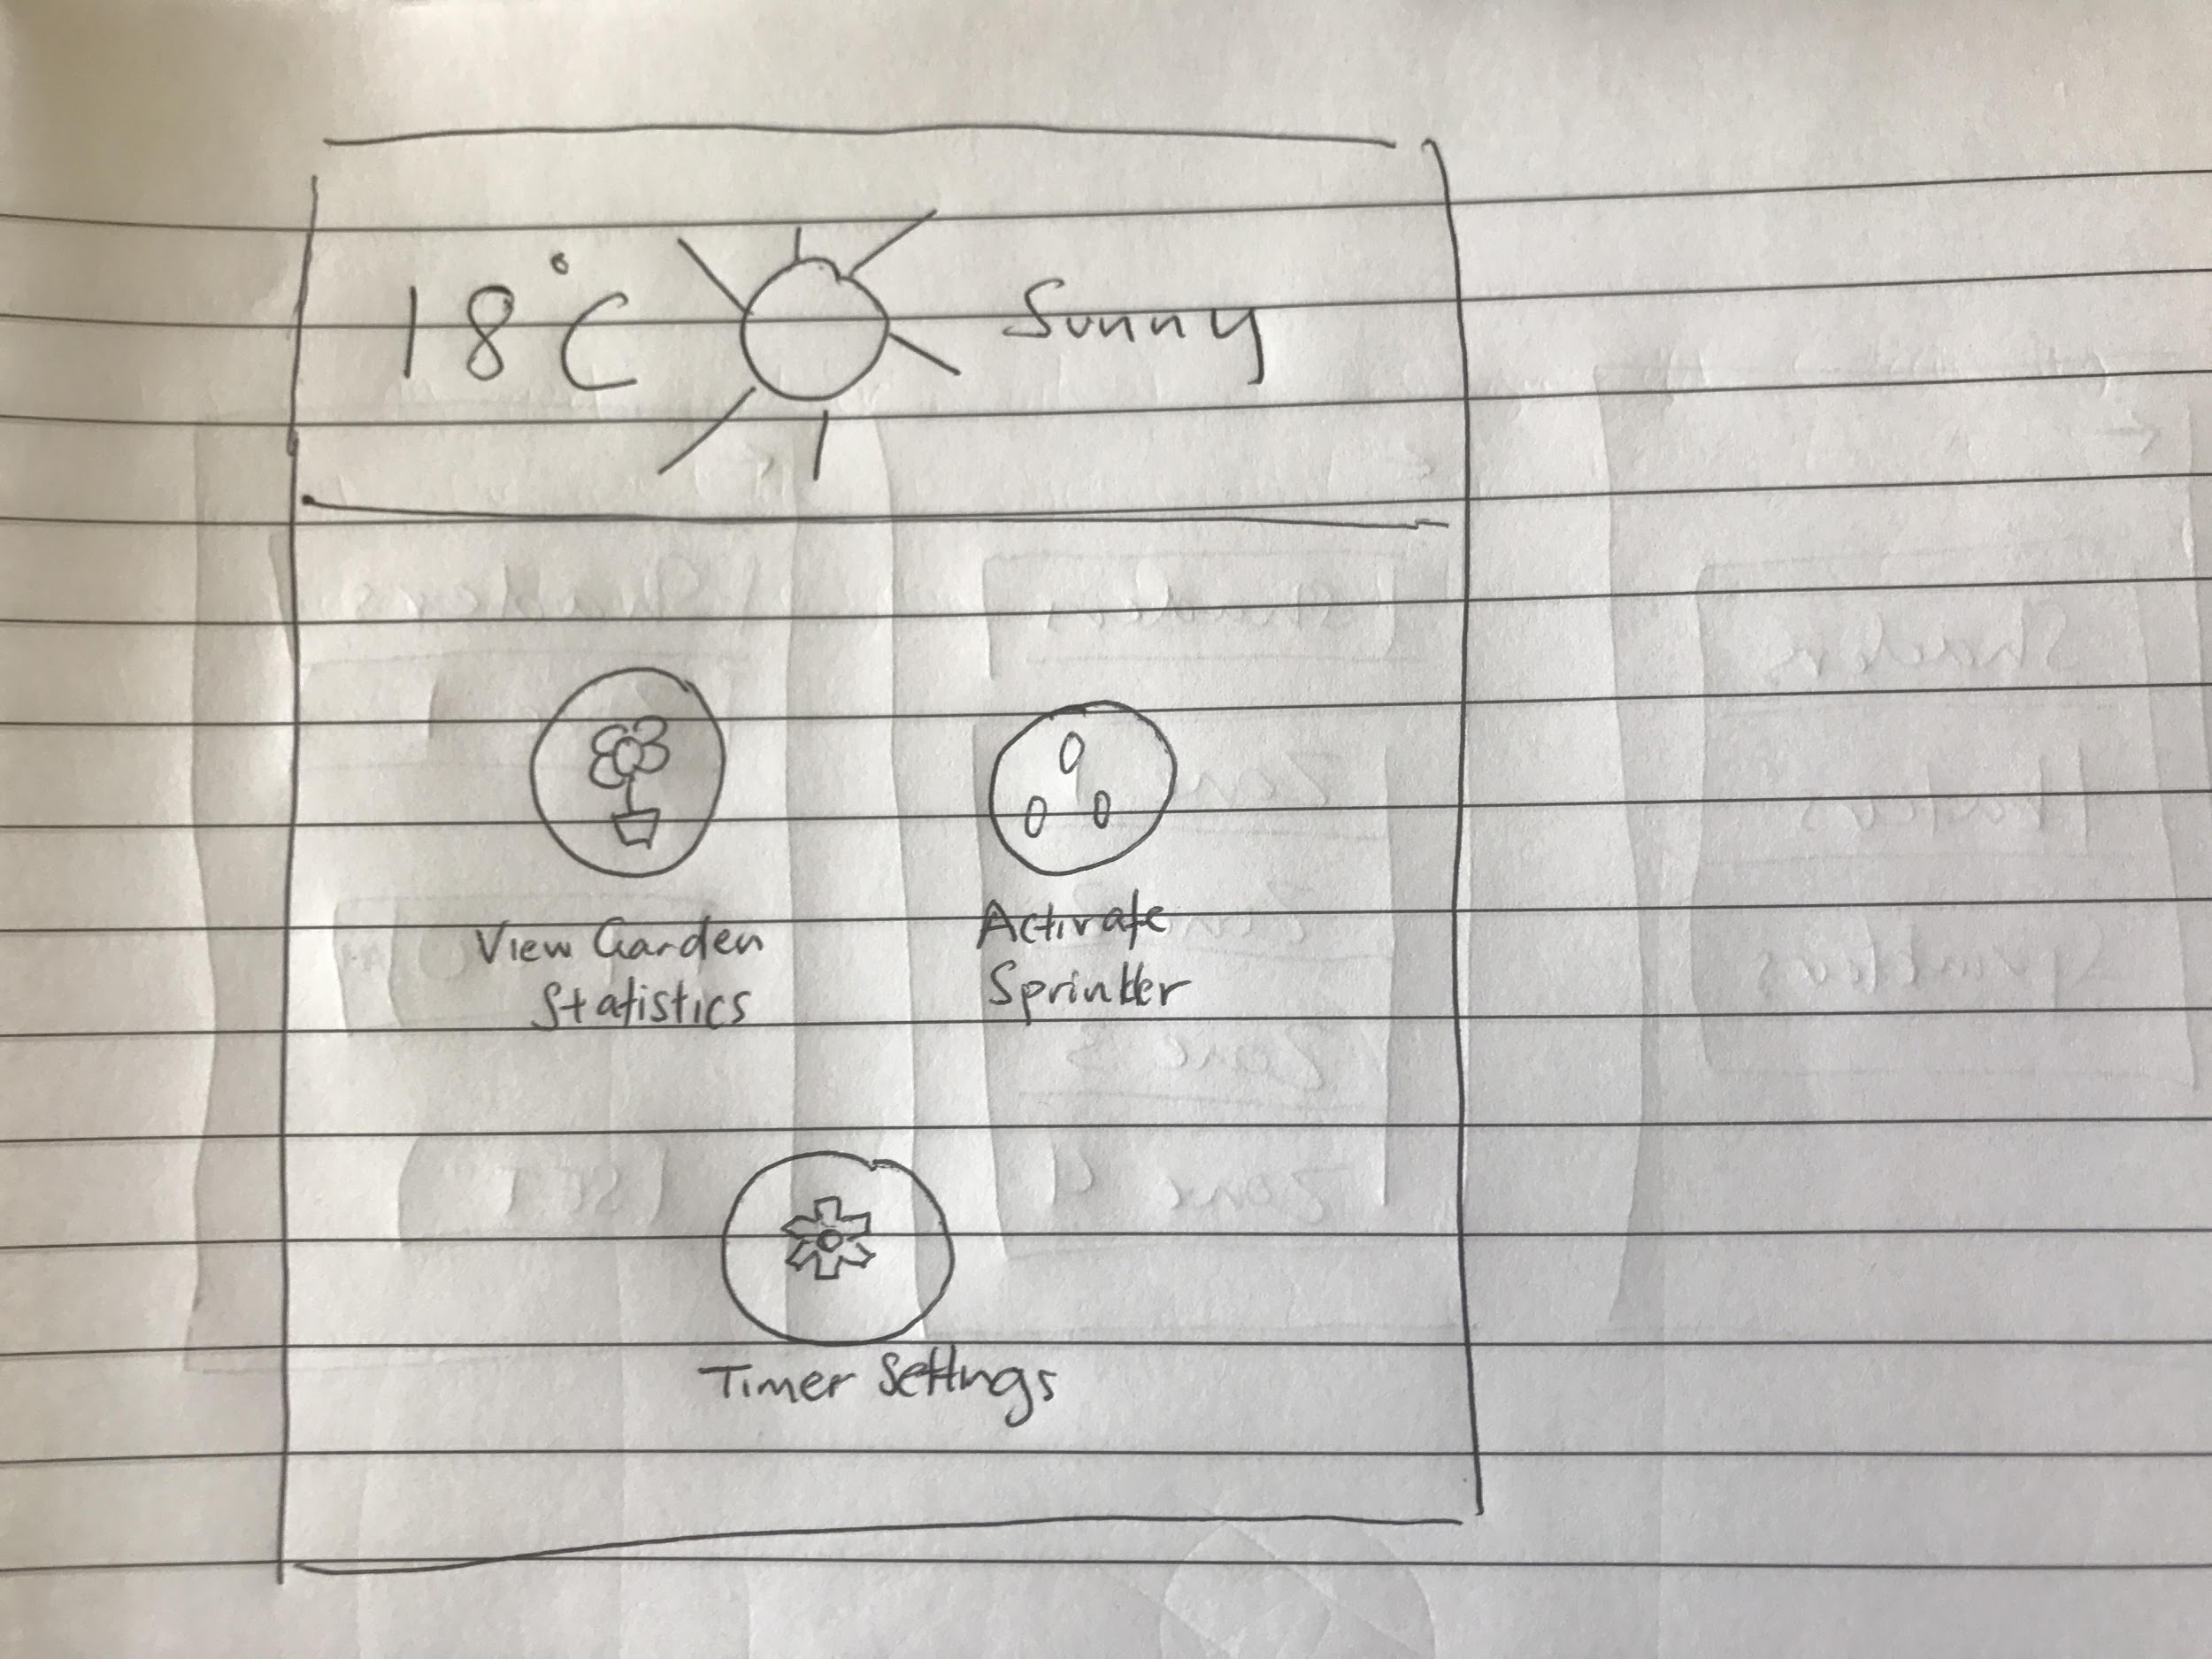 18°C Sunny
View Garden
Statistics
Activate
Sprinkler
Timer Settings